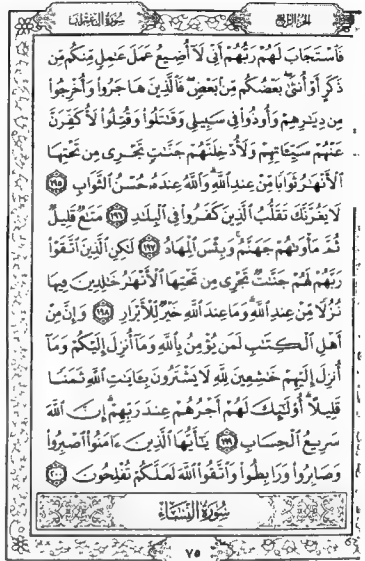 سُورَةُ آلِ عِمۡرَانَ الجُزْءُ الرَّابِعُ
فَٱسۡتَجَابَ لَهُمۡ رَبُّهُمۡ أَنِّي لَآ أُضِيعُ عَمَلَ عَٰمِلٖ مِّنكُم مِّن
ذَكَرٍ أَوۡ أُنثَىٰۖ بَعۡضُكُم مِّنۢ بَعۡضٖۖ فَٱلَّذِينَ هَاجَرُواْ وَأُخۡرِجُواْ
مِن دِيَٰرِهِمۡ وَأُوذُواْ فِي سَبِيلِي وَقَٰتَلُواْ وَقُتِلُواْ لَأُكَفِّرَنَّ
عَنۡهُمۡ سَيِّـَٔاتِهِمۡ وَلَأُدۡخِلَنَّهُمۡ جَنَّٰتٖ تَجۡرِي مِن تَحۡتِهَا
ٱلۡأَنۡهَٰرُ ثَوَابٗا مِّنۡ عِندِ ٱللَّهِۚ وَٱللَّهُ عِندَهُۥ حُسۡنُ ٱلثَّوَابِ ١٩٥
لَا يَغُرَّنَّكَ تَقَلُّبُ ٱلَّذِينَ كَفَرُواْ فِي ٱلۡبِلَٰدِ ١٩٦ مَتَٰعٞ قَلِيلٞ
ثُمَّ مَأۡوَىٰهُمۡ جَهَنَّمُۚ وَبِئۡسَ ٱلۡمِهَادُ ١٩٧ لَٰكِنِ ٱلَّذِينَ ٱتَّقَوۡاْ
رَبَّهُمۡ لَهُمۡ جَنَّٰتٞ تَجۡرِي مِن تَحۡتِهَا ٱلۡأَنۡهَٰرُ خَٰلِدِينَ فِيهَا
نُزُلٗا مِّنۡ عِندِ ٱللَّهِۗ وَمَا عِندَ ٱللَّهِ خَيۡرٞ لِّلۡأَبۡرَارِ ١٩٨ وَإِنَّ مِنۡ
أَهۡلِ ٱلۡكِتَٰبِ لَمَن يُؤۡمِنُ بِٱللَّهِ وَمَآ أُنزِلَ إِلَيۡكُمۡ وَمَآ
أُنزِلَ إِلَيۡهِمۡ خَٰشِعِينَ لِلَّهِ لَا يَشۡتَرُونَ بِـَٔايَٰتِ ٱللَّهِ ثَمَنٗا
قَلِيلًاۚ أُوْلَٰٓئِكَ لَهُمۡ أَجۡرُهُمۡ عِندَ رَبِّهِمۡۗ إِنَّ ٱللَّهَ
سَرِيعُ ٱلۡحِسَابِ ١٩٩ يَٰٓأَيُّهَا ٱلَّذِينَ ءَامَنُواْ ٱصۡبِرُواْ
وَصَابِرُواْ وَرَابِطُواْ وَٱتَّقُواْ ٱللَّهَ لَعَلَّكُمۡ تُفۡلِحُونَ ٢٠٠
سُورَةُ النِّسَاءِ
٧٥